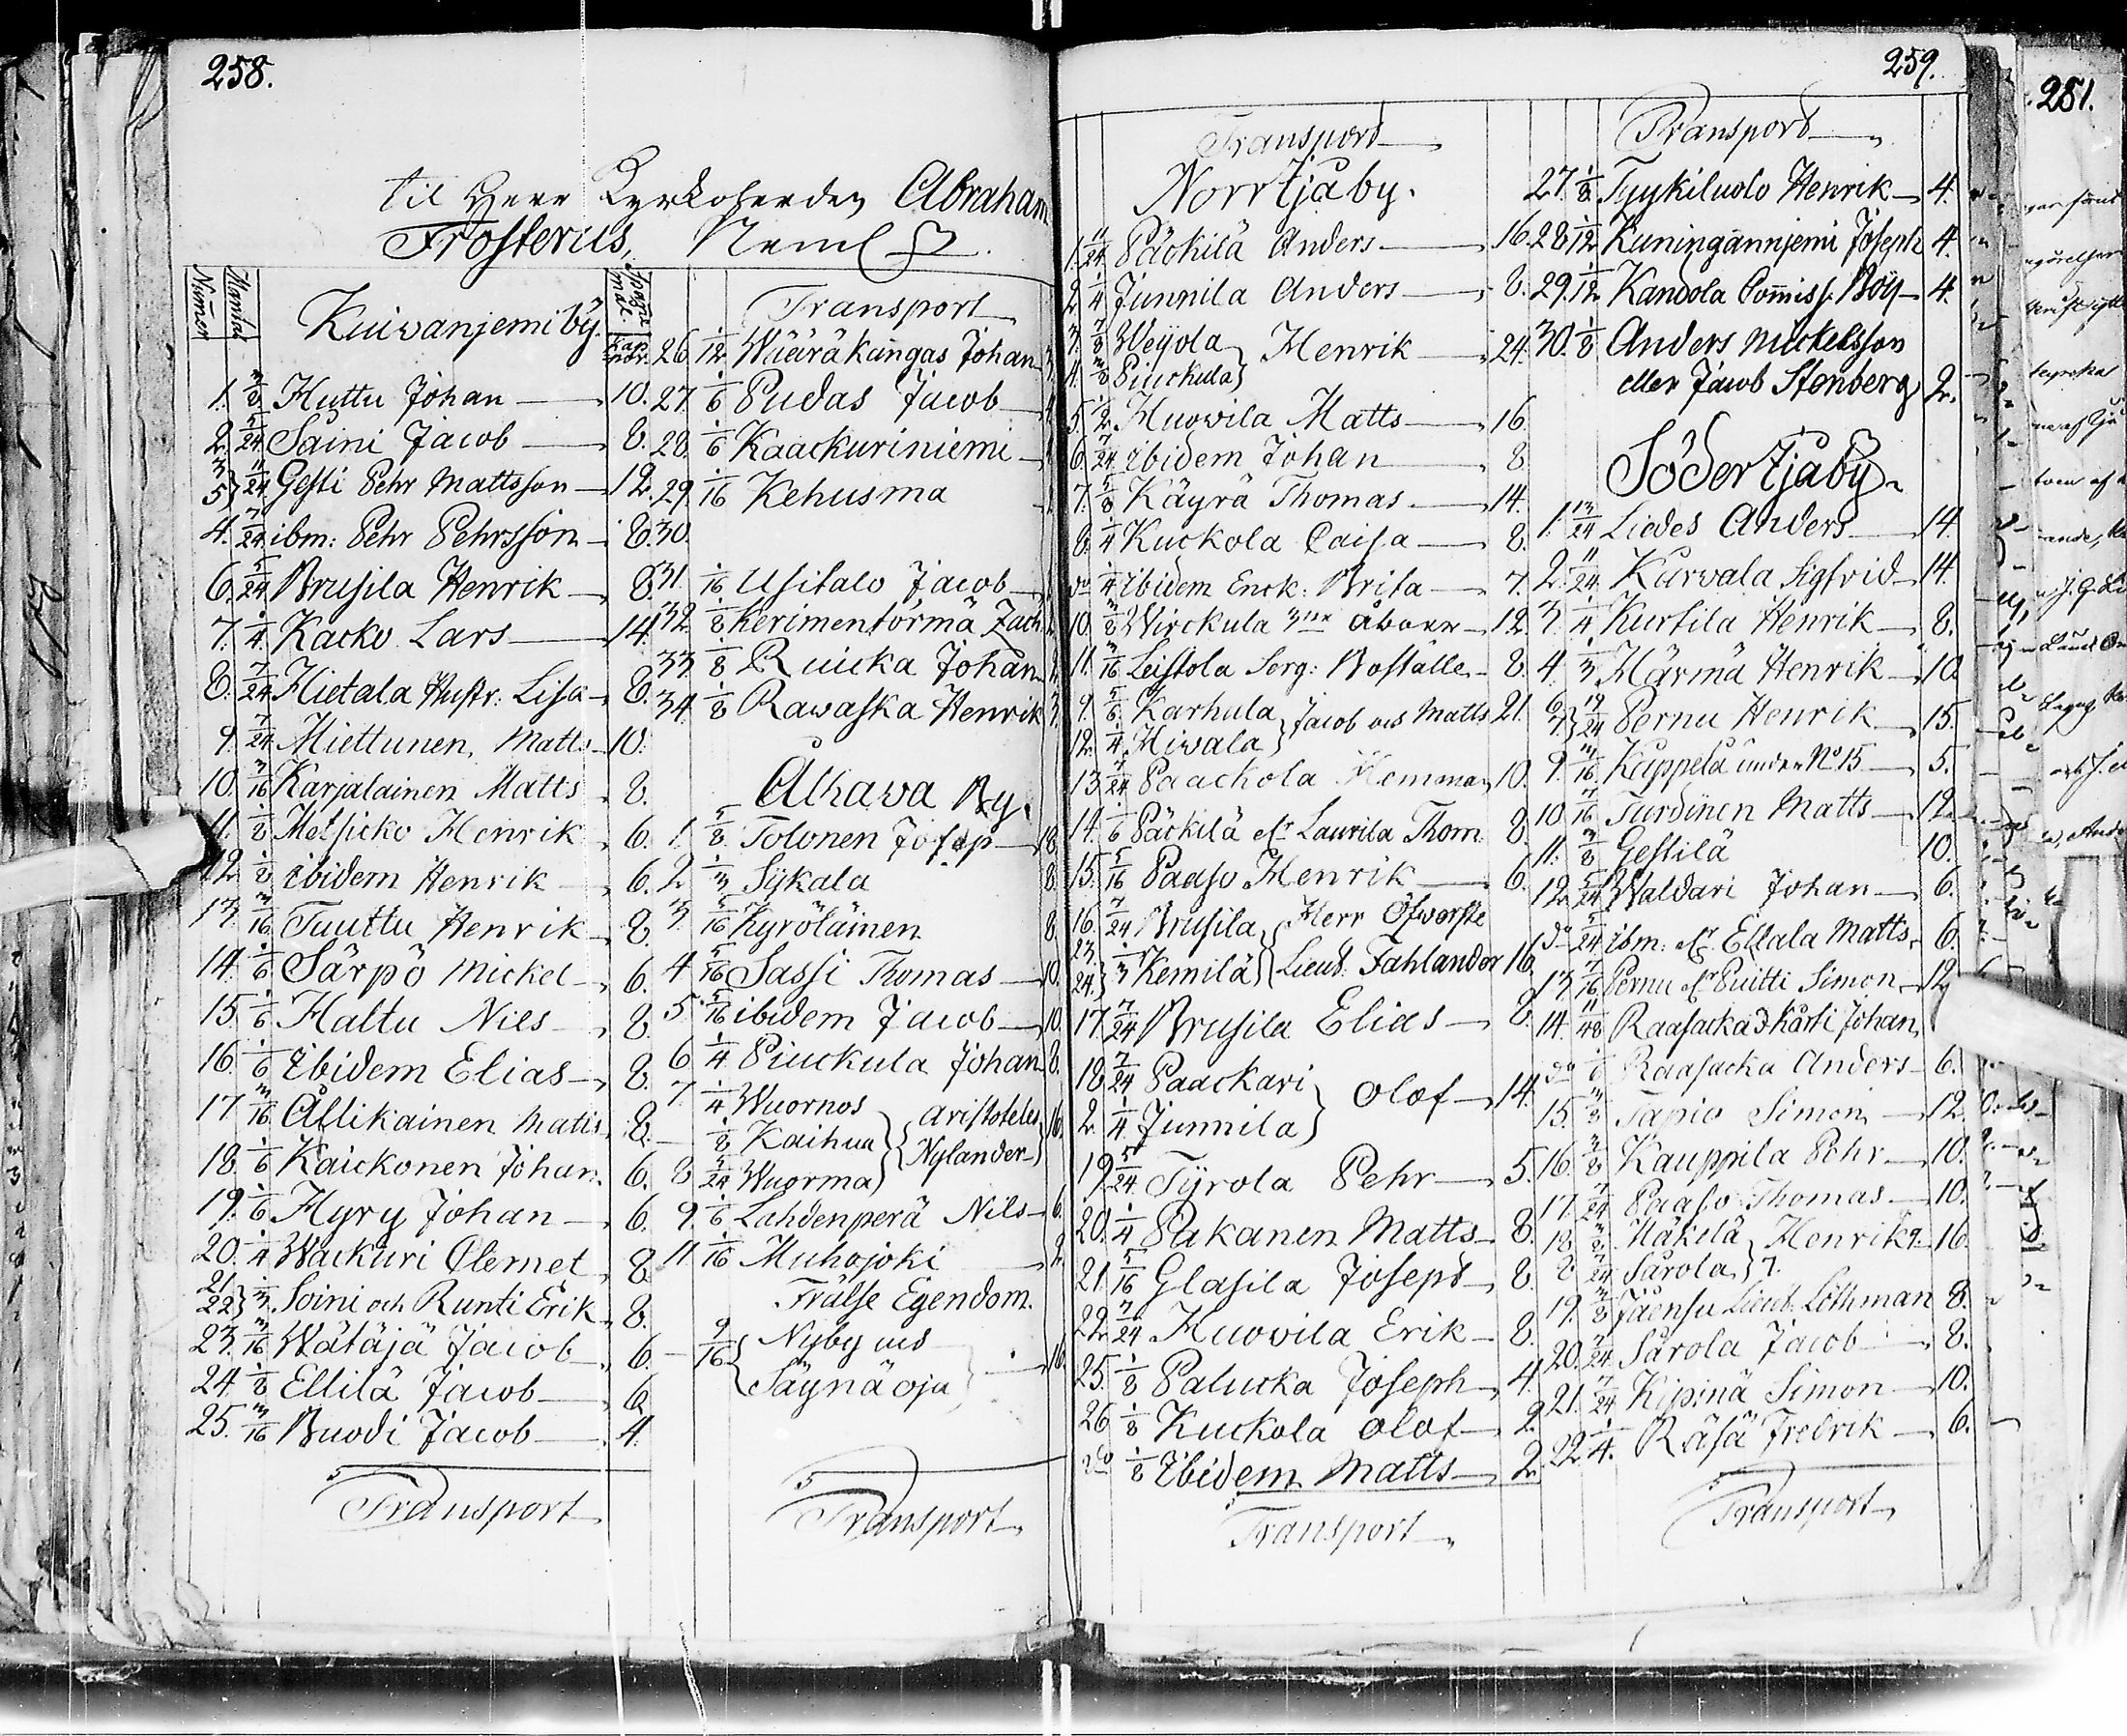 258.
til Herr Kyrkoherden Abraham
Frosterius, Neml
Numer Mantal Kuivanjemi by. Spanmål. Kappor.
1. 3/8 Huttu Johan 10.
2. 5/24 Saini Jacob 8.
3 5} 11/24 Gesti Pehr Mattsson 12.
4. 7/24 ibm: Pehr Pehrsson 8.
6. 5/24 Brusila Henrik 8.
7. 1/4 Kacko Lars 14.
8. 7/24 Hietala Hustr: Lisa 8.
9. 7/24 Miettunen Matts 10.
10. 3/16 Karjalainen Matts 8.
11. 1/8 Meisicko Henrik 6.
12 1/8 ibidem Henrik 6.
13. 3/16 Tuuttu Henrik 8.
14. 1/6 Särpö Mickel 6.
15. 1/6 Haltu Nils 8.
16. 1/6 Ibidem Elias 8.
17. 3/16 Ållikainen Matts 8.
18. 1/6 Kaickonen Johan 6.
19. 1/6 Hyry Johan 6.
20. 1/4 Wackuri Clemet 8.
21 22} 1/3 Soini och Runti Erik 8.
23. 3/16 Wätäjä Jacob 6.
24. 1/8 Ellilä Jacob 6.
25. 3/16 Buodi Jacob 4.
Transport
Transport
26. 1/12 Wääräkangas Johan
27. 1/6 Pudas Jacob 4
28. 1/6 Kaackuriniemi
29. 1/16 Kehusma
30.
31. 1/16 Usitalo Jacob
32. 1/8 Kerimentörmä Zach:
33 1/8 Ruicka Johan
34. 1/8 Rawaska Henrik 3.
Alhava By.
1. 5/8 Tolonen Josep 18
2 1/3 Sykala 8.
3. 5/16 Kyröläinen 8.
4 5/16 Sassi Thomas 10.
5. 5/16 ibidem Jacob 10.
6 1/4 Piuckula Johan 8.
7. 1/4 Wuornos } { Aristoteles 16.
1/8 Kaihua } { Nylander
8 5/24 Wuorma }
9. 1/6 Lahdenperä Nils 6.
11 1/16 Muhojoki 2
Frälse Egendom.
9/16 { Nyby och
Säynäoja } 16.
Transport
259.
Transport
Norr Ijå by.
1. 11/24 Päckilä Anders 16.
2 1/4 Junnila Anders 8.
3. 7/8 Weijola } Henrik 24.
4. 3/8 Piuckula }
5. 1/2 Huovila Matts 16.
6. 7/24 ibidem Johan 8
7. 5/8 Käyrä Thomas 14.
8. 1/4 Kuckola Caisa 8.
do 1/4 ibidem Enck: Brita 7.
10. 3/8 Wirckula 3ne Åboer 12.
11. 3/16 Leistola Serg: Boställe 8.
9. 5/6 Karhula } Jacob och Matts 21.
12. 1/4 Hiwala }
13 7/24 Paackola Hemman 10.
14. 1/6 Päckilä elr Laurila Thom. 8
15. 5/16 Paaso Henrik 6.
16. 7/24 Brusila { Herr Öfwerste
23. 24.} 1/3 Kemilä } Lieut: Fahlander 16.
17. 7/24 Brusila Elias 8.
18 7/24 Paackari } Olof 14.
2. 1/4 Junnila }
19 5/24 Tyrola Pehr 5.
20. 1/4 Pakanen Matts 8.
21. 5/16 Glasila Joseph 8.
22. 7/24 Huovila Erik 8.
25. 1/8 Palucka Joseph 4.
26 1/8 Kuckola Olof 2.
do 1/8 Ibidem Matts 2.
Transport
Transport
27. 1/8 Tyykiluoto Henrik 4.
28 1/12 Kuningannjemi Joseph 4.
29. 1/12 Kandola Commiss. Boij 4.
30. 1/8 Anders Mickelsson
eller Jacob Stenberg 2.
Söder Ijå by
1. 13/24 Liedes Anders 14.
2. 11/24 Kurvala Sigfrid 14.
3. 1/4 Kurtila Henrik 8.
4. 1/3 Härmä Henrik 10.
6 7} 19/24 Pernu Henrik 15.
9. 3/16 Kappela under No 15 5.
10 7/16 Turdinen Matts 12
11. 3/8 Gestilä 10.
12. 5/24 Waldari Johan 6.
do 5/24 ibm: elr Ellala Matts 6.
13 7/16 Pernu elr Puitti Simon 12
14. 11/48 Raasacka Kärti Johan
do 1/6 Raasacka Anders 6.
15. 3/8 Tapio Simon 12.
16. 3/8 Kauppila Pehr 10.
17. 7/24 Paaso Thomas 10.
18 3/8 Häkilä } Henrik 9. 16.
8 7/24 Sarola } 7.
19. 3/8 Jäensu Lieut. Löthman 8.
20. 7/24 Sarola Jacob 8.
21. 7/24 Kipinä Simon 10.
22. 1/4. Räsä Fredrik 6.
Transport
281.